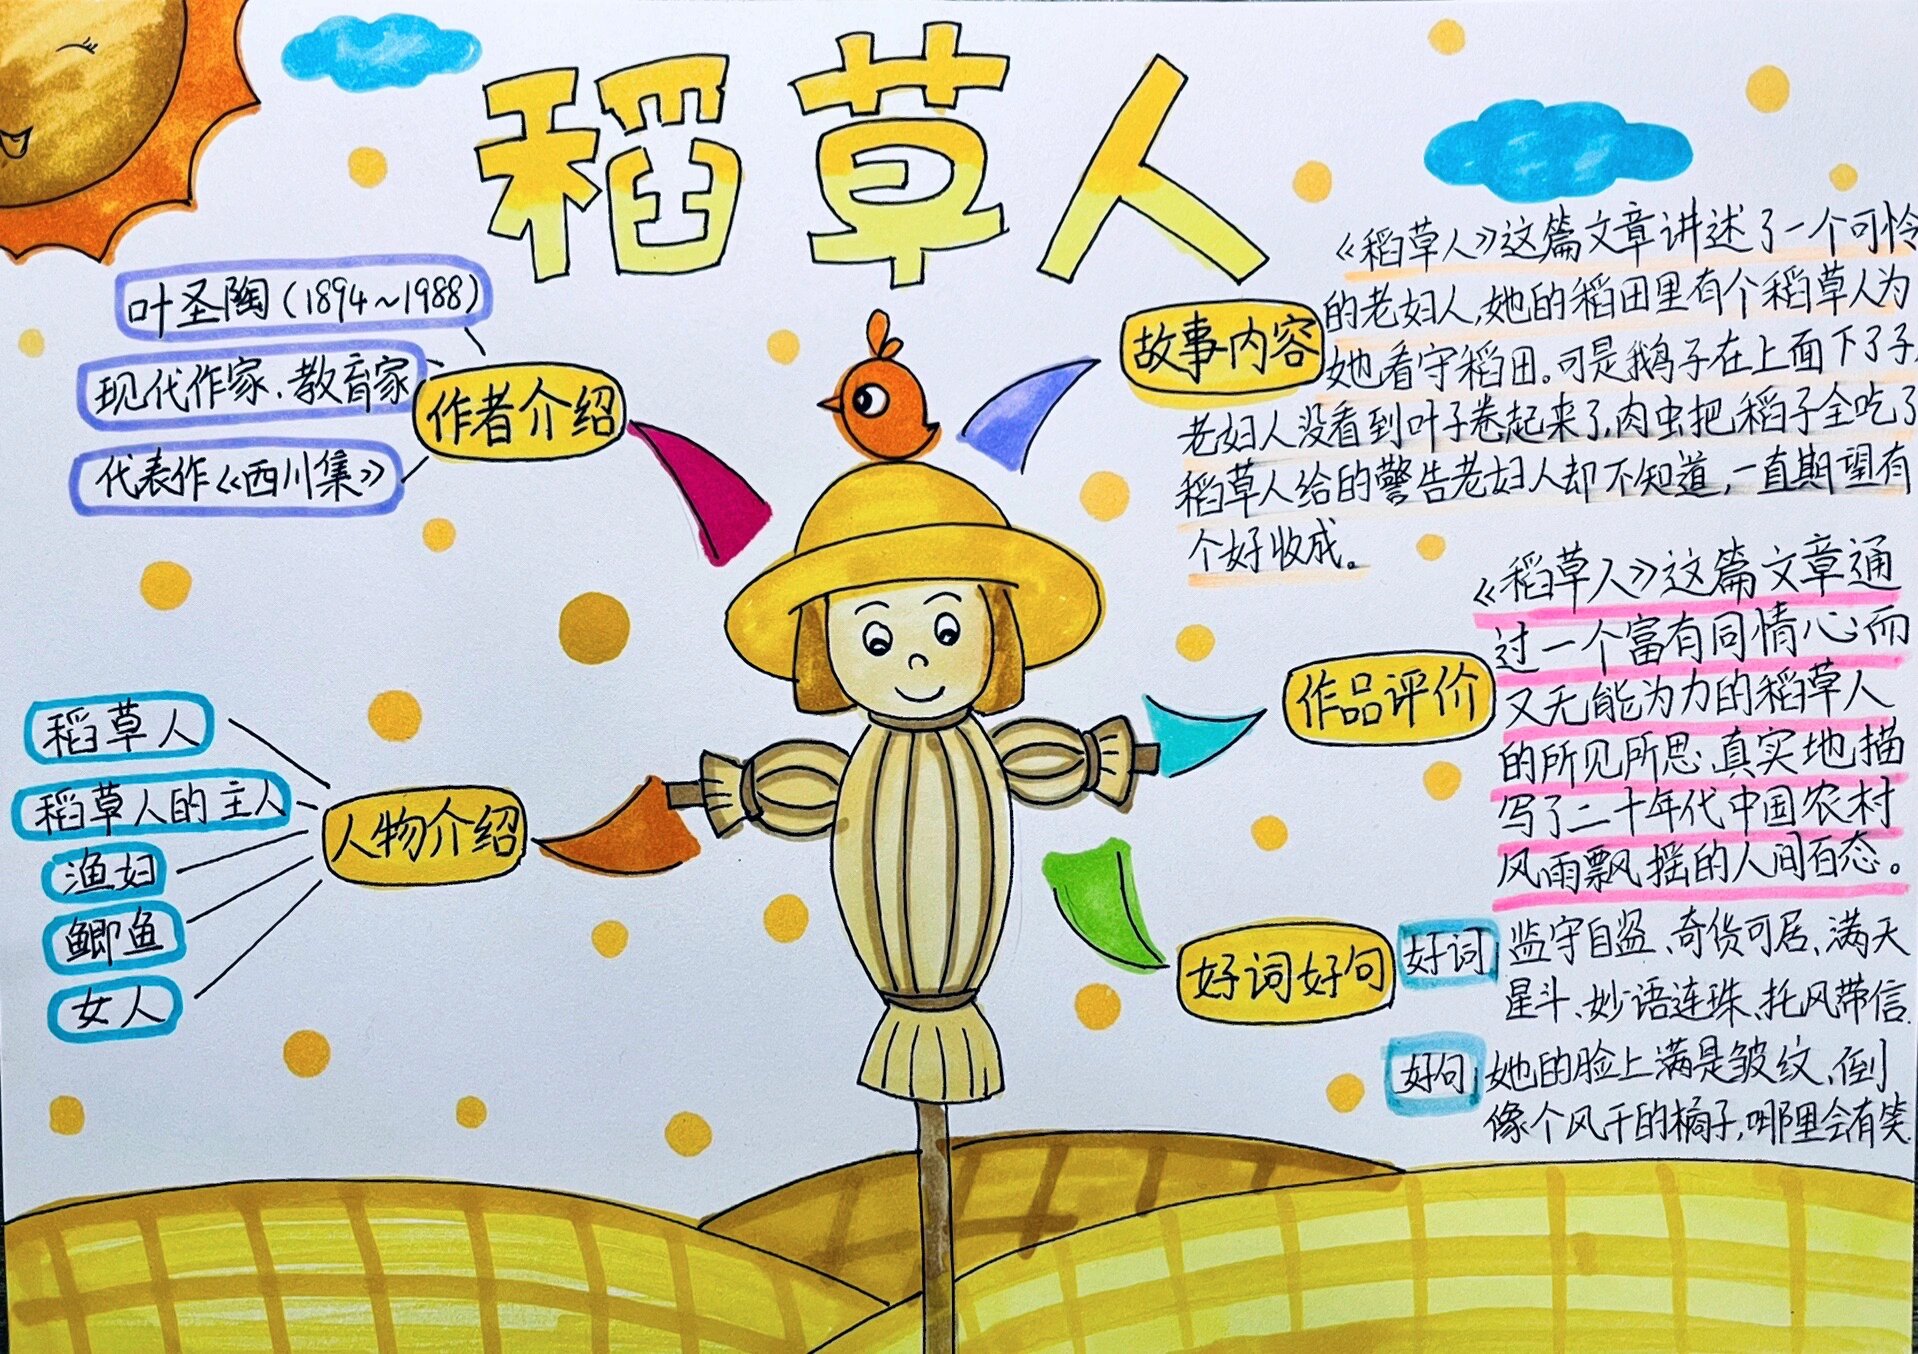 稻草人
叶圣陶(1894~1988)
现代作家、教育家
代表作《西川集》
作者介绍
故事内容
《稻草人》这篇文章讲述了一个可怜
的老妇人,她的稻田里有个稻草人为
她看守稻田。可是我鸟子在上面下了子,
老妇人没看到叶子卷起来了,肉虫把稻子全吃了
稻草人给的警告老妇人却不知道,一直期望有
个好收成。
作品评价
《稻草人》这篇文章通
过一个富有同情心而
又无能为力的稻草人
的所见所思,真实地描
写了二十年代中国农村
风雨飘摇的人间百态。
人物介绍
稻草人
稻草人的主人
渔妇
鲫鱼
女人
好词好句
好词
监守自盗、奇货可居、满天
星斗、妙语连珠、托风带信.
好句
她的脸上满是皱纹、倒
像个风干的橘子,哪里会有笑.